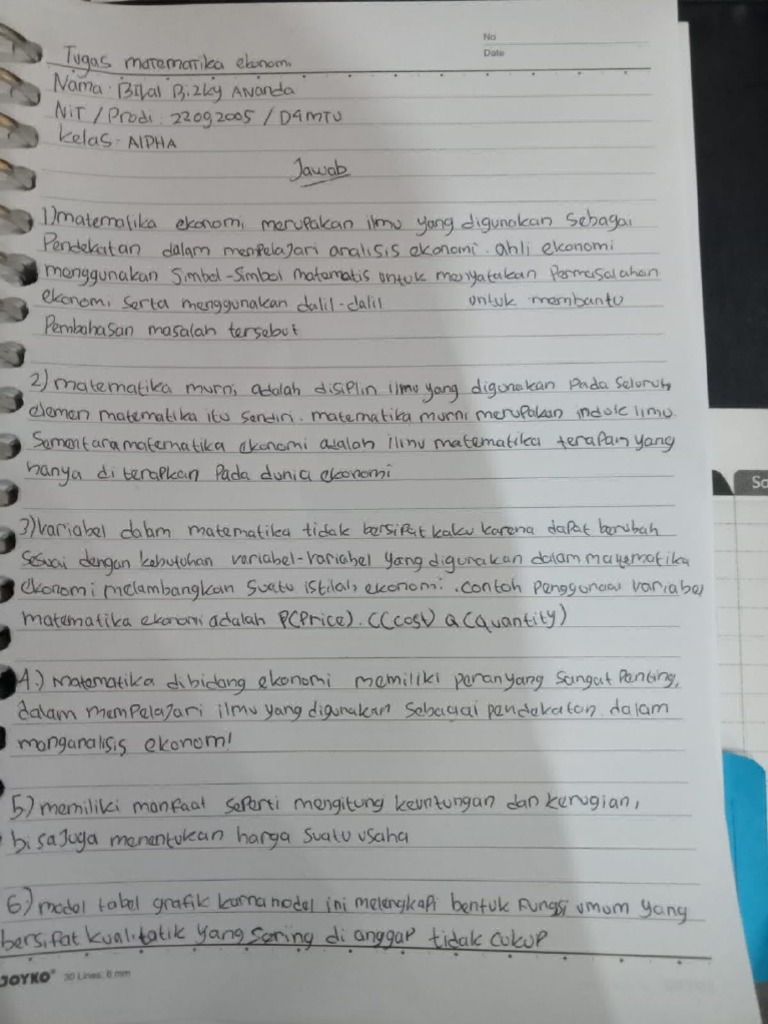 No
Date
Tugas matematika ekonomi
Nama : Bilal Rizky Ananda
NIT / Prodi : 22092005 / D4MTU
Kelas : AlPHA
Jawab
1) matematika ekonomi merupakan ilmu yang digunakan sebagai
Pendekatan dalam mempelajari analisis ekonomi. ahli ekonomi
menggunakan Simbol-Simbol matematis untuk menyatakan Permasalahan
ekonomi serta menggunakan dalil-dalil untuk membantu
Pembahasan masalah tersebut
2) matematika murni adalah disiplin ilmu yang digunakan Pada Seluruh
elemen matematika itu sendiri. matematika murni merupakan induk ilmu.
Sementara matematika ekonomi adalah ilmu matematika terapan yang
hanya di terapkan Pada dunia ekonomi
3) variabel dalam matematika tidak bersifat kaku karena dapat berubah
Sesuai dengan kebutuhan variabel-variabel yang digunakan dalam matematika
ekonomi melambangkan Suatu istilah ekonomi. contoh Penggunaan variabel
matematika ekonomi adalah P(Price). C(cost) Q(quantity)
4.) Matematika dibidang ekonomi memiliki peran yang Sangat Penting,
dalam mempelajari ilmu yang digunakan Sebagai pendekatan dalam
menganalisis ekonomi
5) memiliki manfaat Seperti mengitung keuntungan dan kerugian,
bisa Juga menentukan harga Suatu usaha
6) model tabel grafik karna model ini melengkapi bentuk Fungsi umum yang
bersifat kualitatik yang Sering di anggap tidak cukup
JOYKO 30 Lines, 8 mm